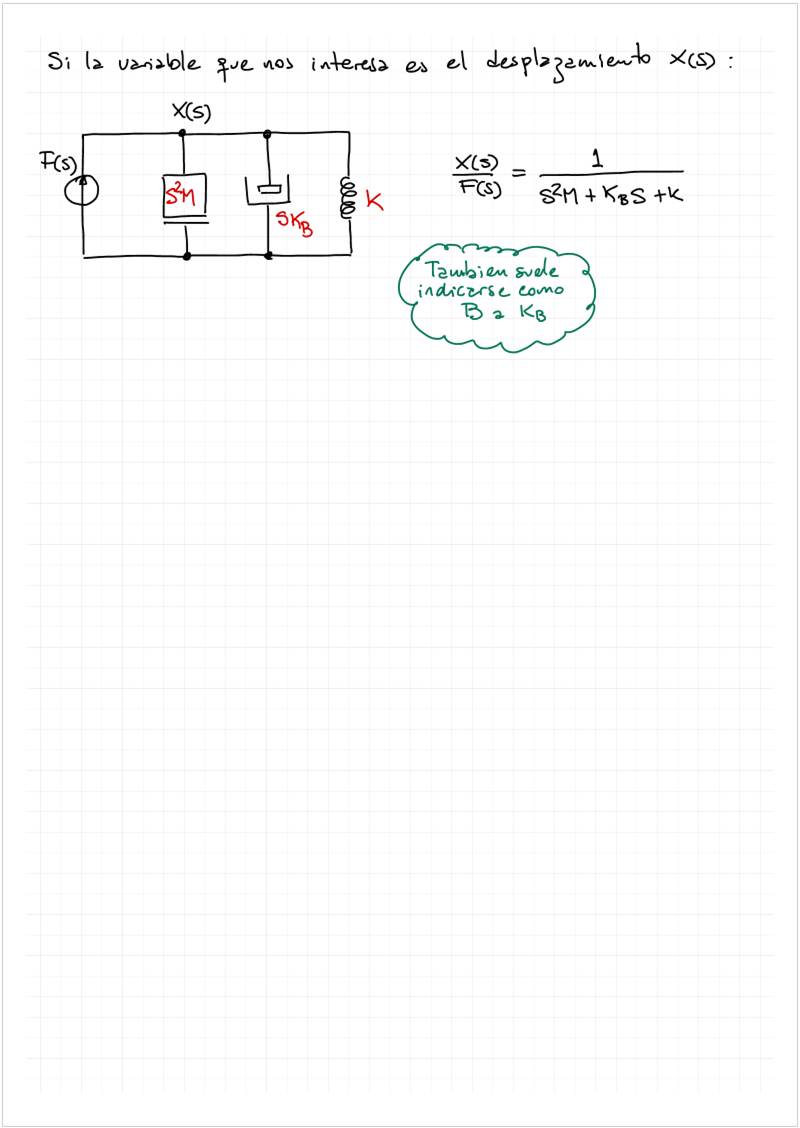 Si la variable que nos interesa es el desplazamiento X(s) :
X(s)
F(s)
S²M
SK_B
K
X(s)/F(s) = 1/(S²M + K_B S + K)
Tambien suele
indicarse como
B a K_B